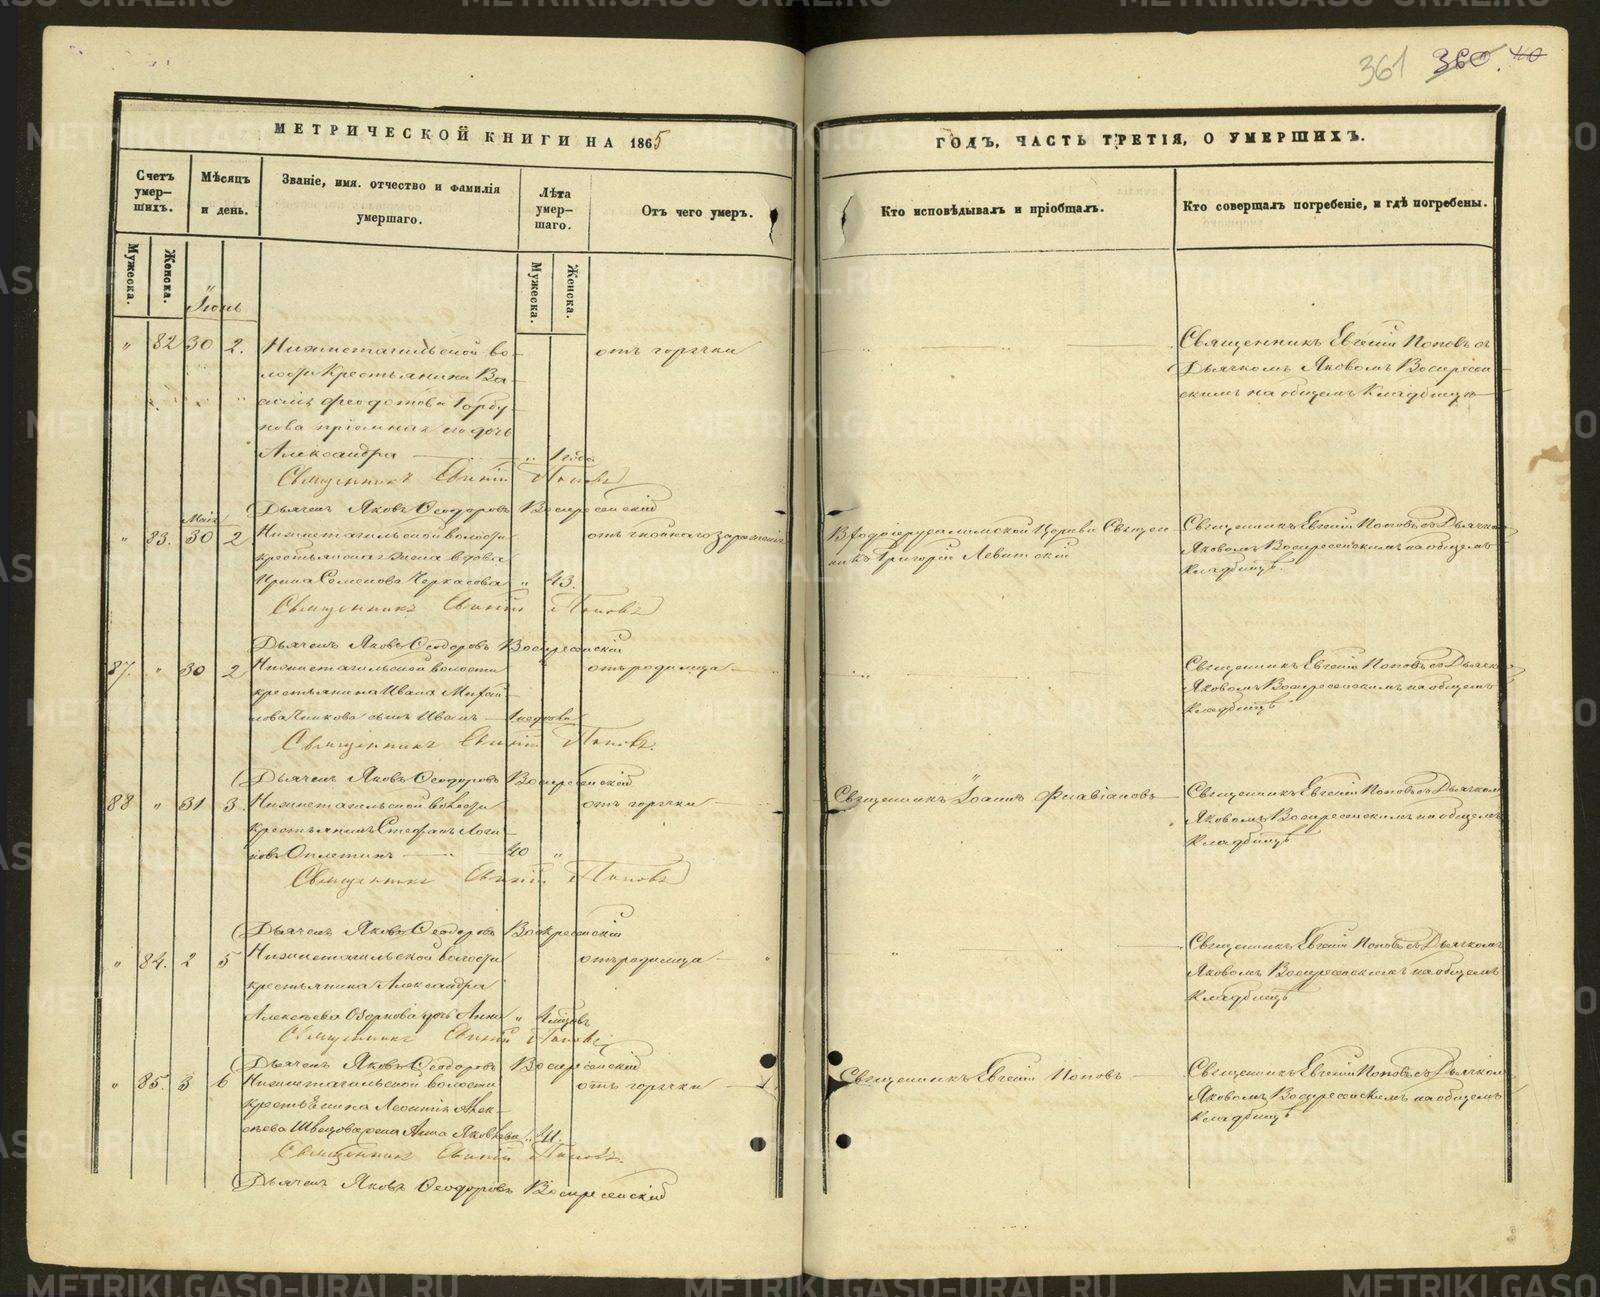 361 360. 40
МЕТРИЧЕСКОЙ КНИГИ НА 1865
ГОДЪ, ЧАСТЬ ТРЕТІЯ, О УМЕРШИХЪ.
Счетъ умер-шихъ.
Мѣсяцъ и день.
Званіе, имя. отчество и фамилія
умершаго.
Лѣта умер-шаго.
Отъ чего умеръ.
Кто исповѣдывалъ и пріобщалъ.
Кто совершалъ погребеніе, и гдѣ погребены.
Мужеска. Женска.
Мужеска. Женска.
Іюнь
" 82 30 2. Нижнетагильской во- отъ горячки Священникъ Евгеній Поповъ съ
лости крестьянина Ва- Дьячкомъ Яковомъ Воскресен-
силія Феодотова Горбу- скимъ на общемъ кладбищѣ
нова пріемная его дочь
Александра " 1 года
Священникъ Евгеній Поповъ
Дьячекъ Яковъ Ѳеодоровъ Воскресенскій
Маія
" 83. 30 2 Нижнетагильской волости отъ гнойнаго зараженія Входоіерусалимской Церкви Священ- Священникъ Евгеній Поповъ съ Дьячкомъ
крестьянская жена вдова никъ Григорій Левитскій Яковомъ Воскресенскимъ на общемъ
Ирина Семенова Черкасова " 43. кладбищѣ.
Священникъ Евгеній Поповъ
Дьячекъ Яковъ Ѳеодоровъ Воскресенскій
87. " 30 2 Нижнетагильской волости отъ родимца Священникъ Евгеній Поповъ съ Дьячкомъ
крестьянина Ивана Михай- Яковомъ Воскресенскимъ на общемъ
лова сынъ Иванъ кладбищѣ
Священникъ Евгеній Поповъ.
Дьячекъ Яковъ Ѳеодоровъ Воскресенскій
88 " 31 3. Нижнетагильской волости отъ горячки Священникъ Іоаннъ Флавіановъ Священникъ Евгеній Поповъ съ Дьячкомъ
крестьянинъ Стефанъ Логи- Яковомъ Воскресенскимъ на общемъ
новъ Оплетинъ 40 " кладбищѣ
Священникъ Евгеній Поповъ
Дьячекъ Яковъ Ѳеодоровъ Воскресенскій
" 84. 2 5 Нижнетагильской волости отъ родимца Священникъ Евгеній Поповъ съ Дьячкомъ
крестьянина Александра Яковомъ Воскресенскимъ на общемъ
Алексѣева Озорнова дочь Анна " кладбищѣ
Священникъ Евгеній Поповъ
Дьячекъ Яковъ Ѳеодоровъ Воскресенскій
" 85. 3 6 Нижнетагильской волости отъ горячки Священникъ Евгеній Поповъ Священникъ Евгеній Поповъ съ Дьячкомъ
крестьянина Леонтія Алек- Яковомъ Воскресенскимъ на общемъ
сѣева Швецова жена Анна Яковлева " 41. кладбищѣ
Священникъ Евгеній Поповъ.
Дьячекъ Яковъ Ѳеодоровъ Воскресенскій
METRIKI.GASO-URAL.RU